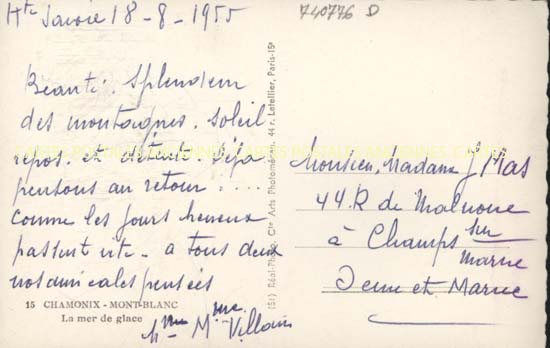 Hte Savoie 18-8-1955
740776 D
Beauté. Splendeur
des montagnes. Soleil
repos. et détente. Déja
pensons au retour ....
comme les jours heureux
passent vite - a tous deux
nos amicales pensées
Mme Villain
15 CHAMONIX - MONT-BLANC
La mer de glace
(St) Réal-Photo, Cie Arts Photomécan. 44 r. Letellier, Paris-15e
Monsieur, Madame J. Mas
44. R de Malnoue
à Champs sur
marne
Seine et Marne